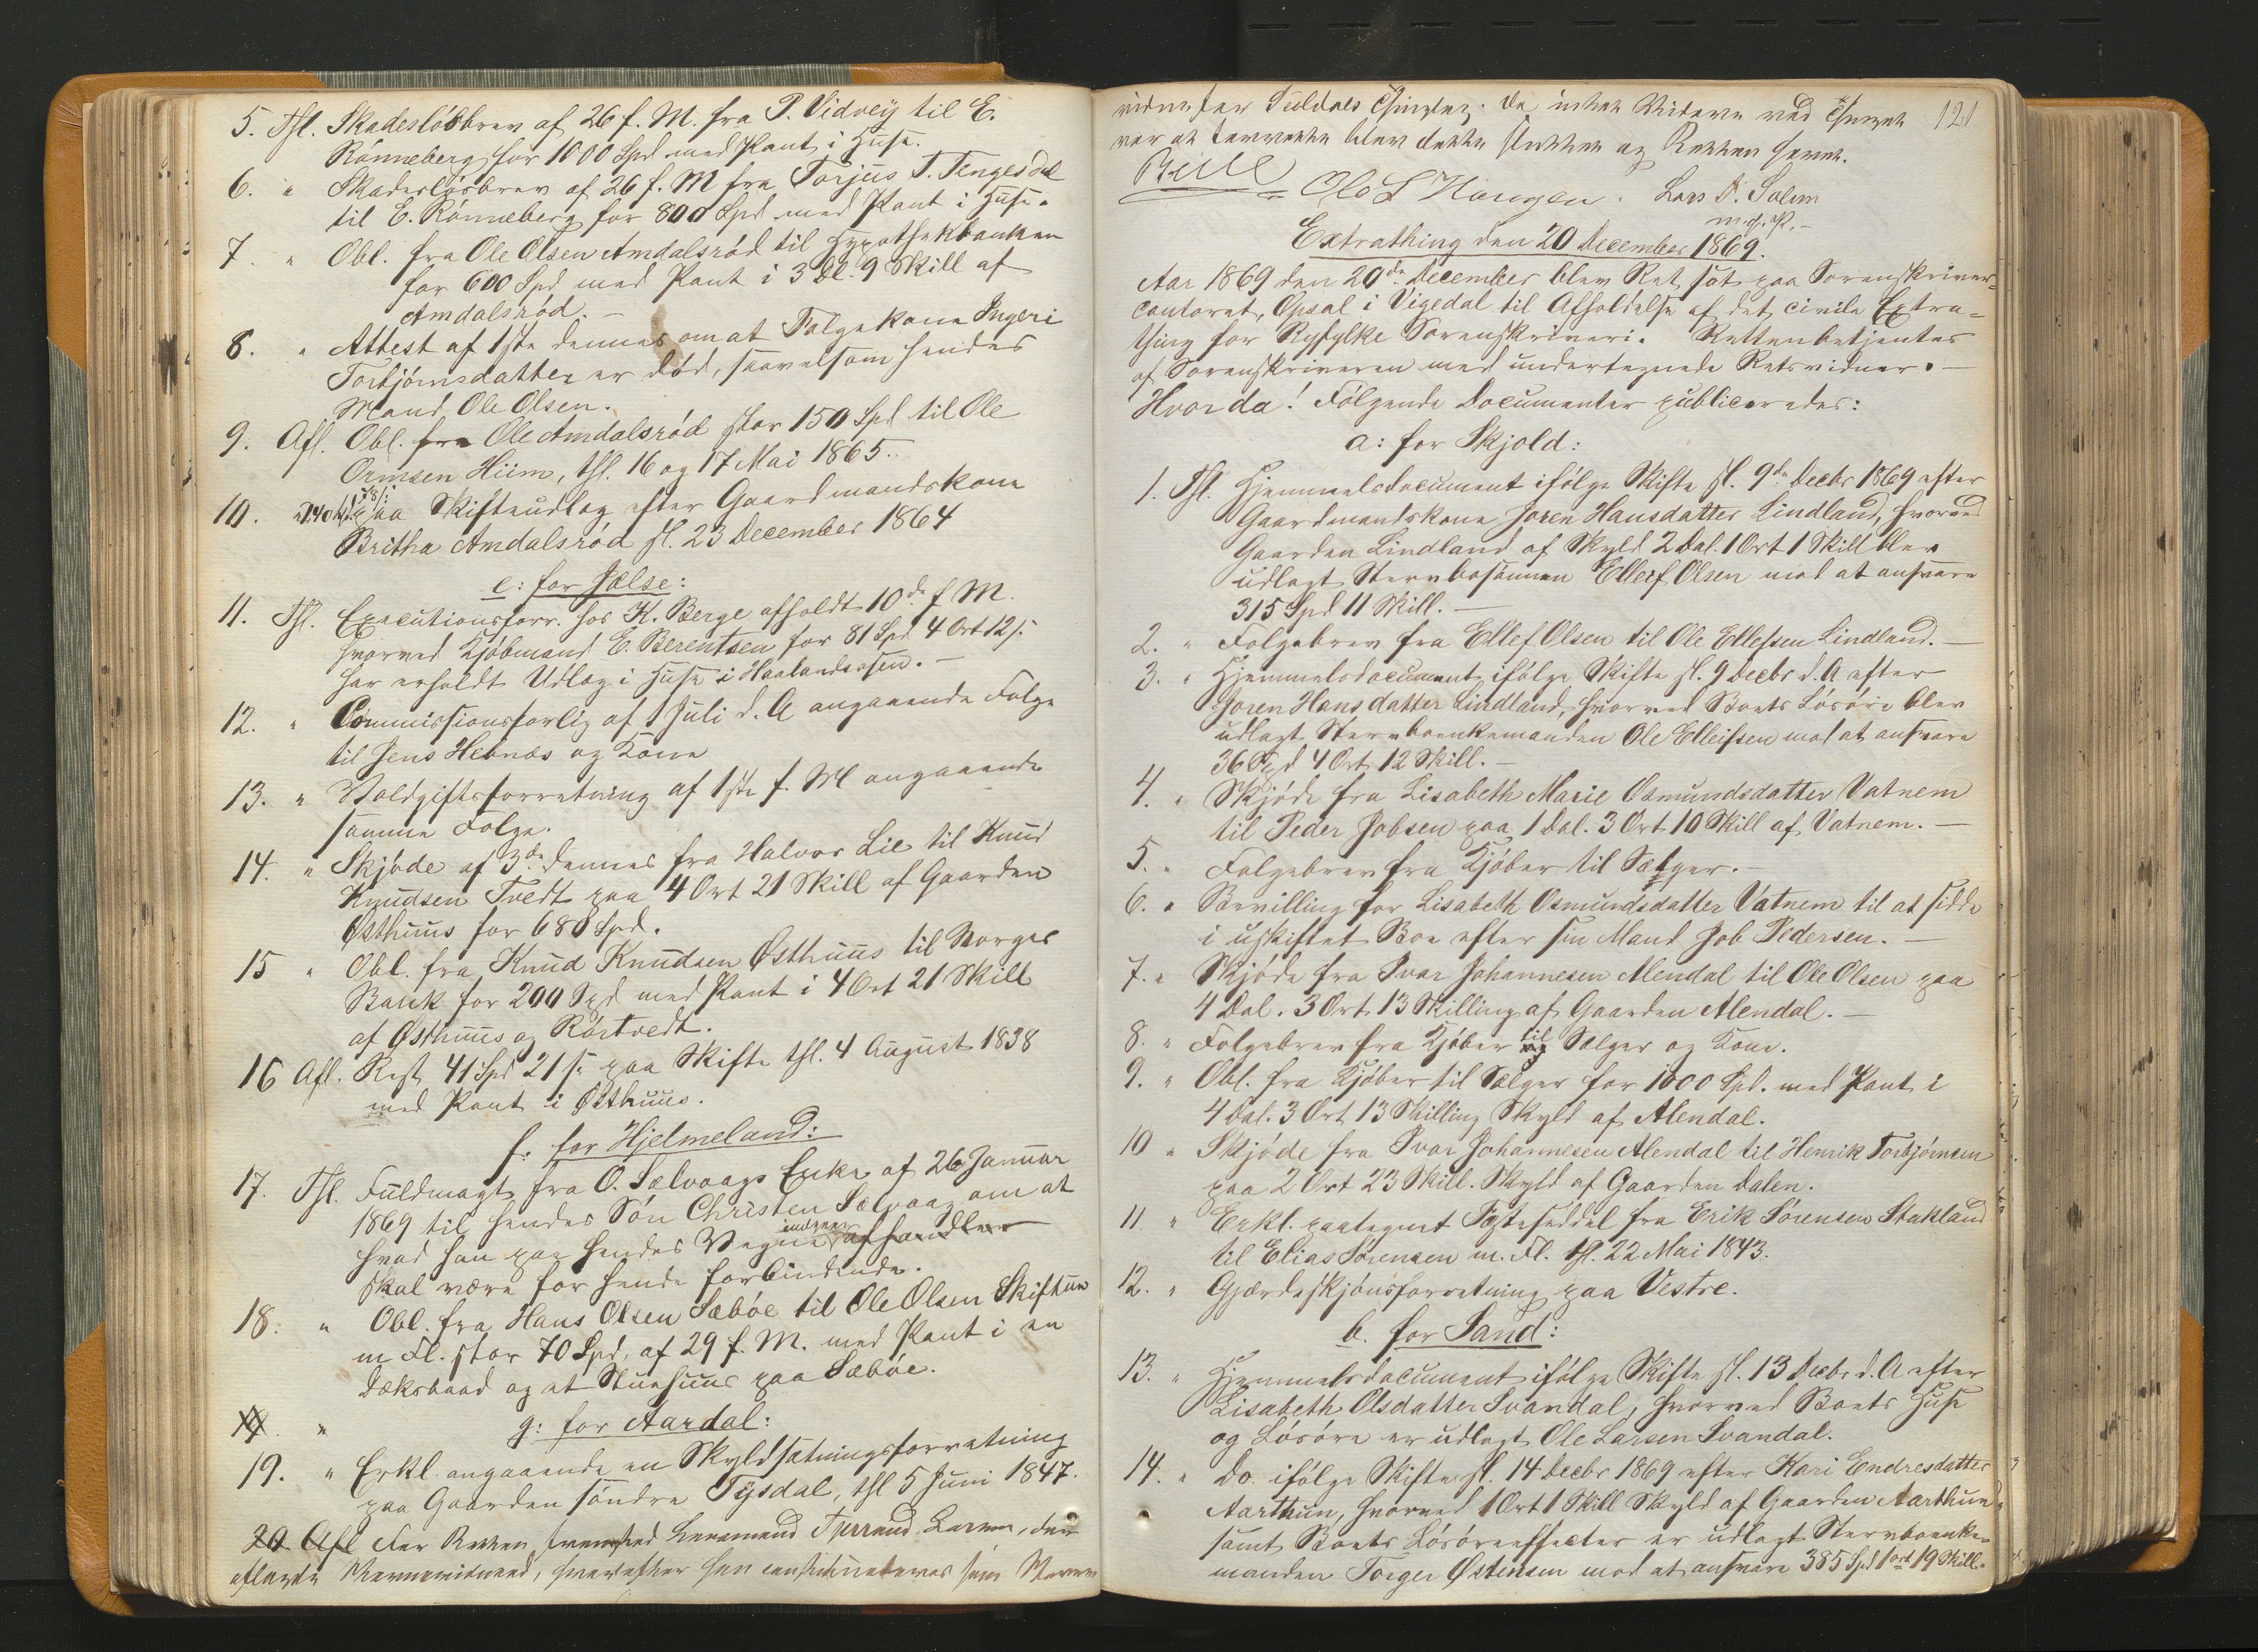 5. Thl. Skadesløsbrev af 26 f. M. fra P. Vidvey til E.
Rönneberg for 1000 Spd med Pant i Huse.
6. " Skadesløsbrev af 26 f. M fra Torjus T. Tengesdal
til E. Rönneberg for 800 Spd med Pant i Huse.
7. " Obl. fra Ole Olsen Amdalsröd til Hypothekbanken
for 600 Spd med Pant i 3 Dl. 9 Skill af
Amdalsröd. –
8. " Attest af 1ste dennes om at Folgekone Ingeri
Torbjörnsdatter er död, saavelsom hendes
Mand, Ole Olsen.
9. Afl. Obl. fra Ole Amdalsröd stor 150 Spd til Ole
Ormsen Hiim, thl. 16 og 17 Mai 1865.
10. " paa Skifteudlæg efter Gaardmandskone
Britha Amdalsröd sl. 23 December 1864
e: for Jælse:
11. Thl. Executionsforr. hos K. Berge afholdt 10de f. M.
hvorved Kjöbmand E. Berentsen for 81 Spd 4 Ort 12 s:
har erholdt Udlæg i Huse i Haalandsosen. –
12. " Commissionsforlig af 1 Juli d. A angaaende Folge
til Jens Hebnæs og Kone
13. " Voldgiftsforretning af 1ste f. M angaaende
samme Folge.
14. " Skjöde af 3de dennes fra Halvor Lie til Knud
Knudsen Tvedt paa 4 Ort 21 Skill af Gaarden
Østhuus for 680 Spd.
15 " Obl. fra Knud Knudsen Østhuus til Norges
Bank for 200 Spd med Pant i 4 Ort 21 Skill
af Østhuus og Rörtvedt.
16 Afl. Rest 41 Spd 21 s: paa Skifte thl. 4 August 1838
med Pant i Østhuus.
f: for Hjelmeland:
17. Thl. Fuldmagt fra O. Sælvaags Enke af 26 Januar
1869 til hendes Sön Christen Sælvaag om at
hvad han paa hendes Vegne indgaar afhandler
skal være for hende forbindende.
18. " Obl. fra Hans Olsen Sæböe til Ole Olsen Skiftun
m Fl. stor 70 Spd, af 29 f. M. med Pant i en
Dæksbaad og et Stuehuus paa Sæböe.
19. " g: for Aardal:
19. " Erkl. angaaende en Skyldsætningsforretning
paa Gaarden söndre Tysdal, thl 5 Juni 1847.
20 Afl For Retten fremstod Leensmand Larsen, der
aflagde, hvorefter han som
121
Suldals Thinglag. Da intet Videre ved Thinget
var at blev dette sluttet og Retten hævet.
Ole L Hougen. Lars D. Solem
m. f. P. –
Extrathing den 20 December 1869.
Aar 1869 den 20de December blev Ret sat paa Sorenskriver-
contoret, Opsal i Vigedal til Afholdelse af det civile Extra-
thing for Ryfylke Sorenskriveri. Retten betjentes
af Sorenskriveren med undertegnede Retsvidner. –
Hvorda! Fölgende Documenter publiceredes:
a: for Skjold:
1. Thl. Hjemmelsdocument ifölge Skifte sl. 9de Decbr 1869 efter
Gaardmandskone Joren Hansdatter Lindland, hvorved
Gaarden Lindland af Skyld 2 Dal. 1 Ort 1 Skill blev
udlagt Stervbosönnen Elleif Olsen mod at ansvare
315 Spd 11 Skill. –
2. " Folgebrev fra Ellef Olsen til Ole Ellefsen Lindland. –
3. " Hjemmelsdocument ifölge Skifte sl. 9 Decbr d. A efter
Joren Hansdatter Lindland, hvorved Boets Lösöre blev
udlagt Stervboenkemanden Ole Elleifsen mod at ansvare
36 Spd 4 Ort 12 Skill. –
4. " Skjöde fra Lisabeth Marie Osmundsdatter Vatnem
til Peder Jobsen paa 1 Dal. 3 Ort 10 Skill af Vatnem. –
5. " Folgebrev fra Kjöber til Sælger. –
6. " Bevilling for Lisabeth Osmundsdatter Vatnem til at sidde
i uskiftet Boe efter sin Mand Job Pedersen. –
7. " Skjöde fra Ivar Johannesen Alendal til Ole Olsen paa
4 Dal. 3 Ort 13 Skilling af Gaarden Alendal. –
8. " Folgebrev fra Kjöber og til Sælger og Kone.
9. " Obl. fra Kjöber til Sælger for 1000 Spd. med Pant i
4 Dal. 3 Ort 13 Skilling Skyld af Alendal.
10 " Skjöde fra Ivar Johannesen Alendal til Henrik Torbjörnsen
paa 2 Ort 23 Skill. Skyld af Gaarden Dalen.
11. " Erkl. paategnet Fæsteseddel fra Erik Sörensen Stakland
til Elias Sörensen m. Fl. thl. 22 Mai 1843.
12. " Gjærdeskjönsforretning paa Vestre.
b. for Sand:
13. " Hjemmelsdocument ifölge Skifte sl. 13 Decbr. d. A efter
Lisabeth Olsdatter Svandal, hvorved Boets Huse
og Lösöre er udlagt Ole Larsen Svandal.
14. " Do. ifölge Skifte sl. 14 Decbr 1869 efter Kari Endresdatter
Aarthun, hvorved 1 Ort 1 Skill Skyld af Gaarden Aarthun
samt Boets Lösöreeffecter er udlagt Stervboenke-
manden Torger Østensen mod at ansvare 385 Spd 1 ort 19 Skill.